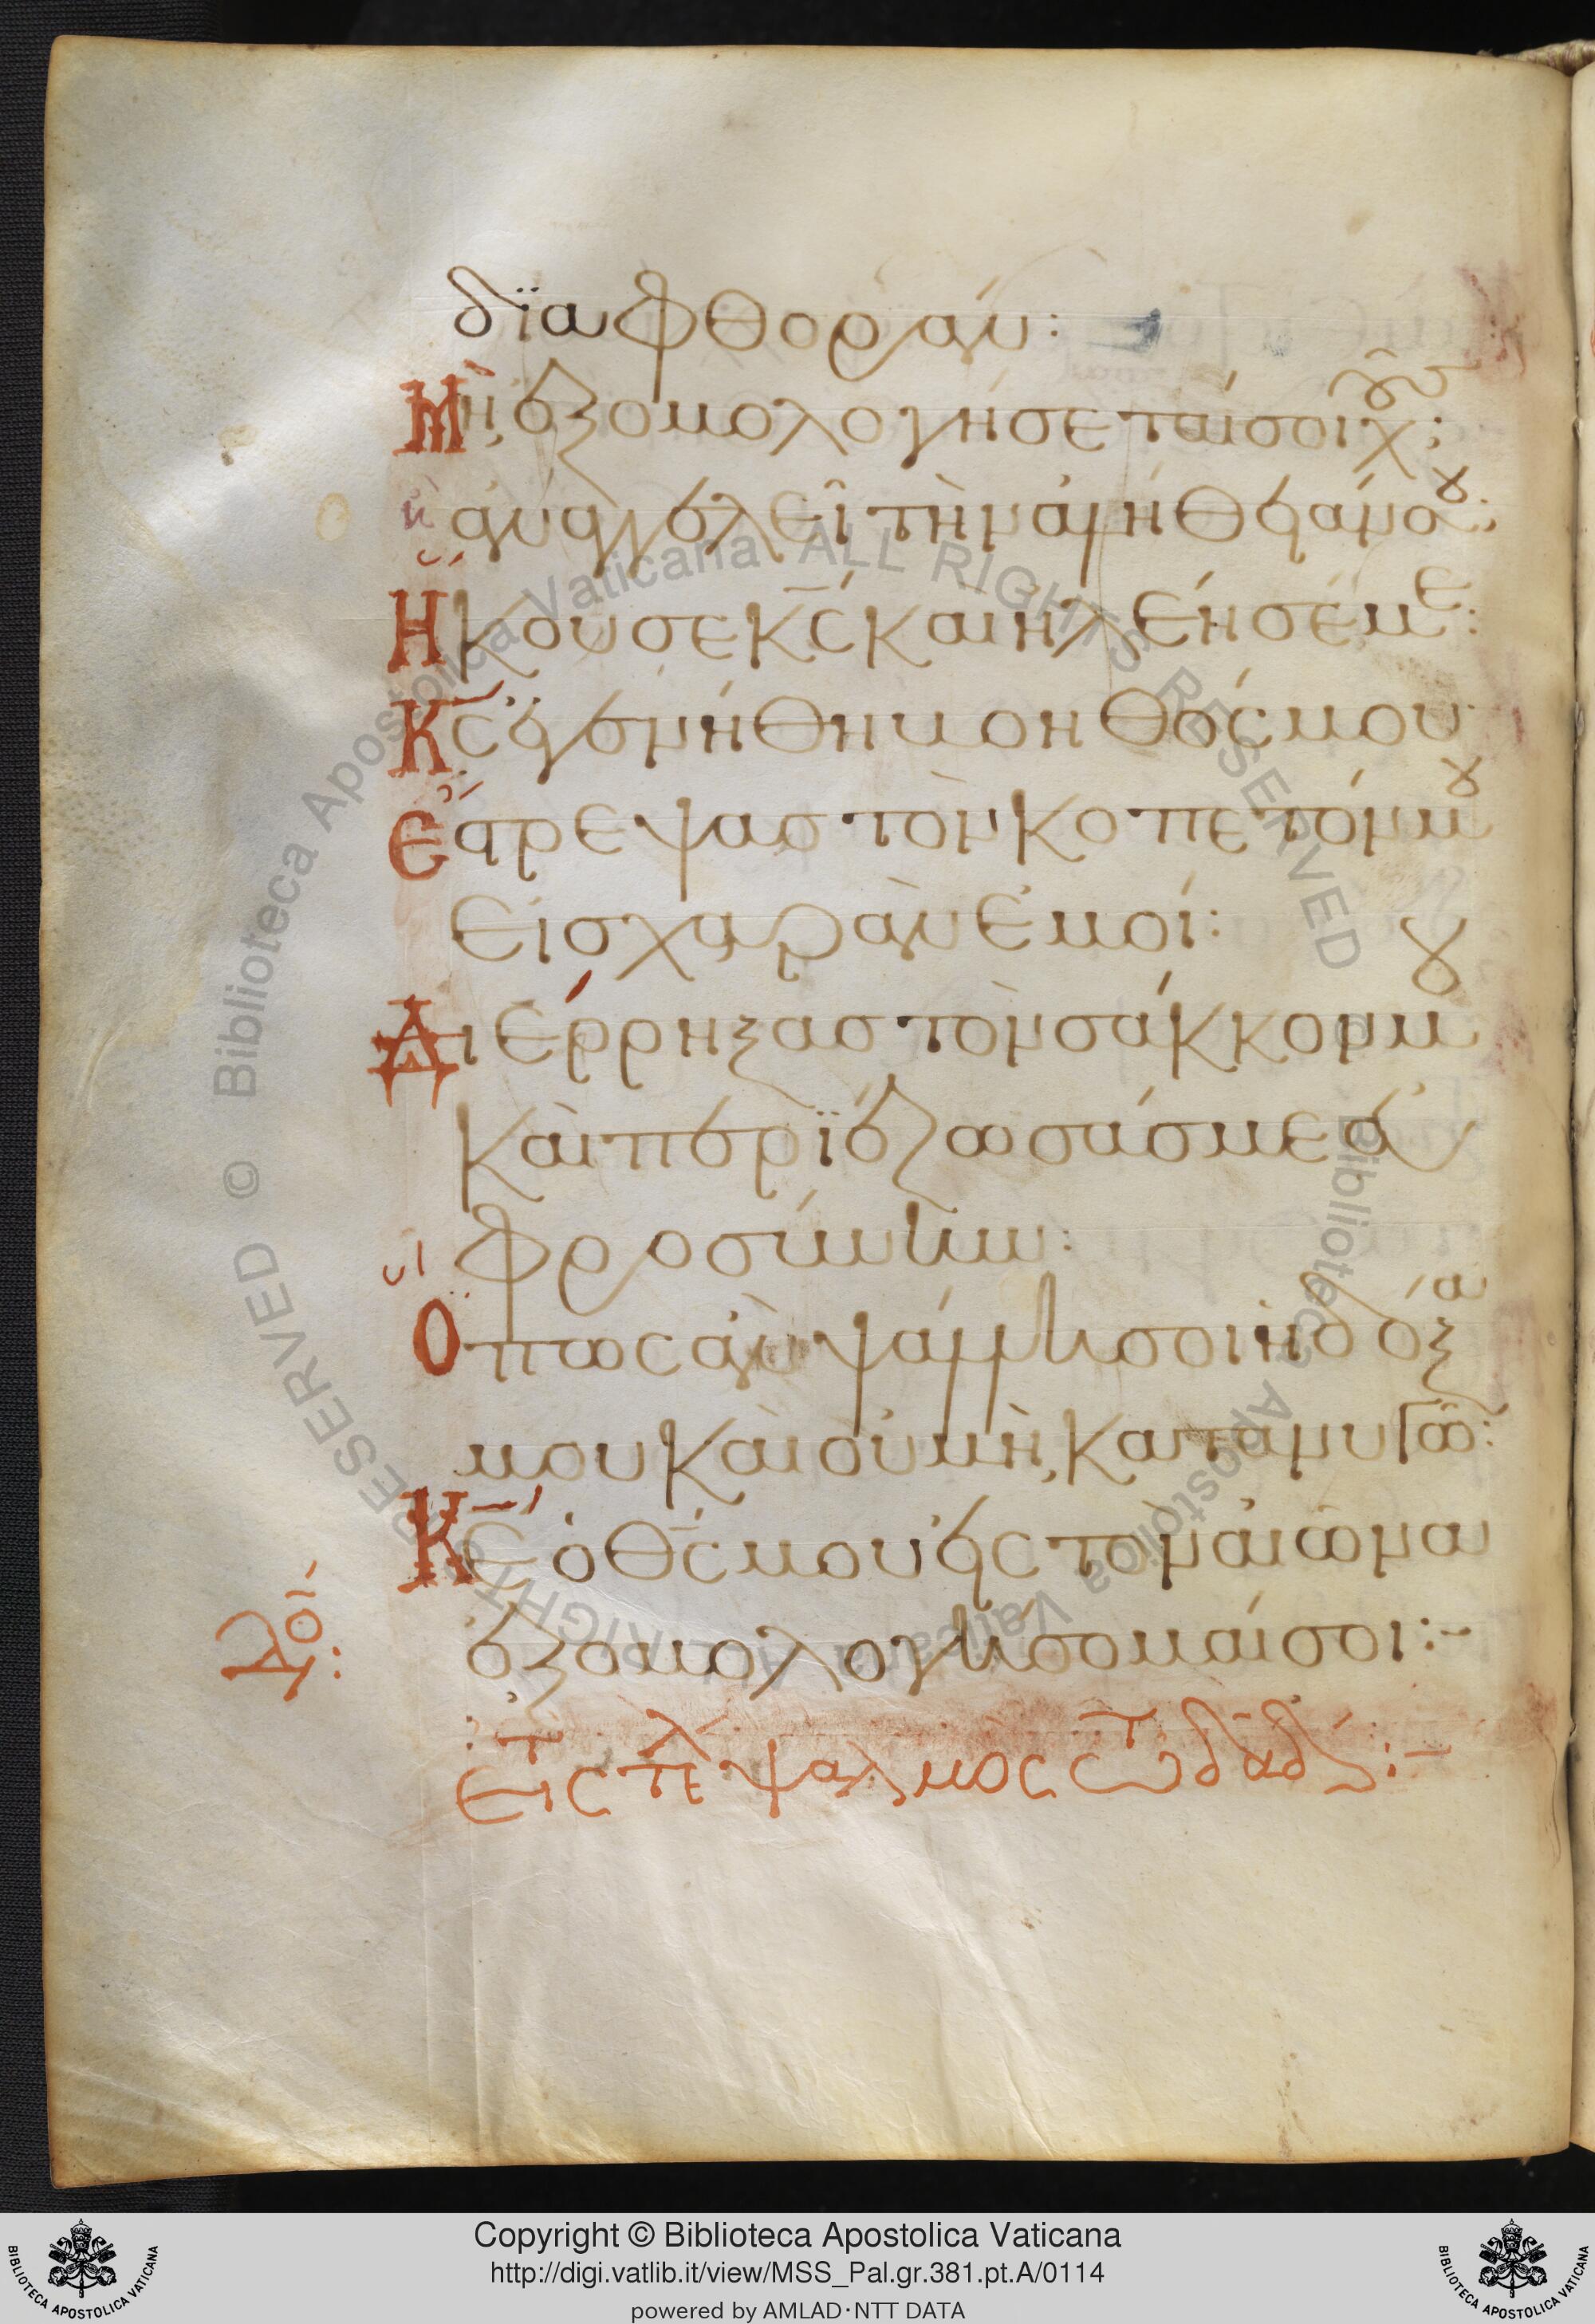 διαφθοράν:
Μὴ ἐξομολογήσεταί σοι χοῦς;
ἢ ἀναγγελεῖ τὴν ἀλήθειάν σου;
Ἤκουσε κ̅ς̅ καὶ ἠλέησέ με:
Κ̅ς̅ ἐγενήθη βοηθός μου
Ἔστρεψας τὸν κοπετόν μου
εἰς χαρὰν ἐμοί:
Διέρρηξας τὸν σάκκον μου
καὶ περιέζωσάς με εὐ
φροσύνην:
Ὅπως ἂν ψάλλη σοι ἡ δόξα
μου καὶ οὐ μὴ κατανυγῶ:
Κ̅ε̅ ὁ θ̅ς̅ μου εἰς τὸν αἰῶνα
ἐξομολογήσομαί σοι:-
λ̅ο̅ι̅:
Εἰς τ τελ ψαλμὸς τῶ δα̅δ̅:-
Copyright © Biblioteca Apostolica Vaticana
http://digi.vatlib.it/view/MSS_Pal.gr.381.pt.A/0114
powered by AMLAD·NTT DATA
BIBLIOTECA APOSTOLICA VATICANA
BIBLIOTECA APOSTOLICA VATICANA